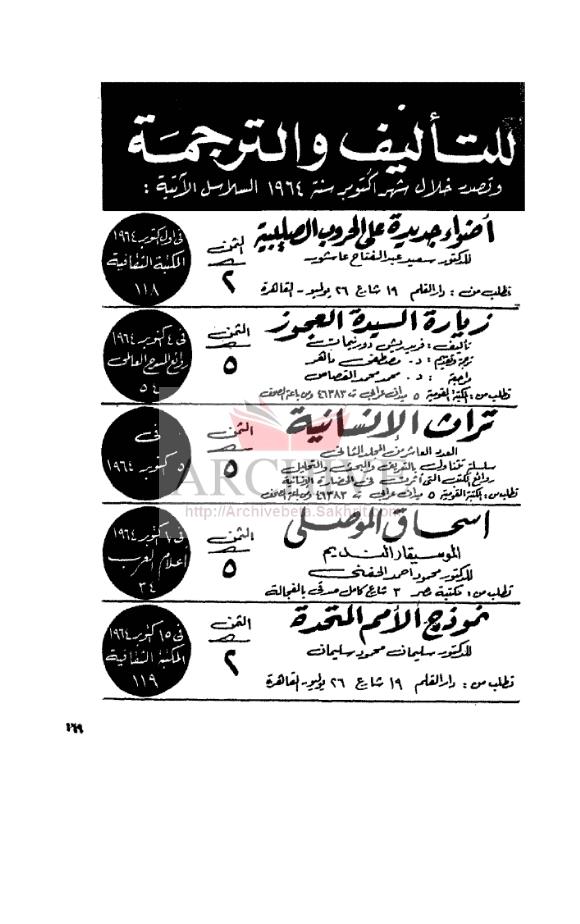 للتأليف والترجمة
وتصدر خلال شهر اكتوبر سنة ١٩٦٤ السلاسل الآتية :
أضواء جديدة على الحروب الصليبية
للدكتور سعيد عبد الفتاح عاشور
تطلب من : دار القلم ١٩ شارع ٢٦ يوليو - القاهرة
الثمن
٢
فى اول اكتوبر ١٩٦٤
المكتبة الثقافية
١١٨
زيارة السيدة العجوز
تأليف : فريدريش دورنيمات
ترجمة وتقديم : د. مصطفى ماهر
مراجعة : د. محمد محمد القصاص
تطلب من : المكتبة القومية ٥ ميدان عرابى ت ٤٦٣٨٣ ومن باعة الصحف
الثمن
٥
فى ٤ اكتوبر ١٩٦٤
روائع المسرح العالمى
٥٤
تراث الإنسانية
العدد العاشر من المجلد الثانى
سلسلة تتناول بالتعريف والبحث والتحليل
روائع الكتب التى أثرت فى الحضارة الإنسانية
تطلب من : المكتبة القومية ٥ ميدان عرابى ت ٤٦٣٨٣ ومن باعة الصحف
الثمن
٥
فى
٥ اكتوبر ١٩٦٤
اسحاق الموصلى
الموسيقار النديم
للدكتور محمود أحمد الحفنى
تطلب من : مكتبة مصر ٣ شارع كامل صدقى بالفجالة
الثمن
٥
فى ١ اكتوبر ١٩٦٤
أعلام العرب
٣٤
نموذج الأمم المتحدة
للدكتور سليمان محمود سليمان
تطلب من : دار القلم ١٩ شارع ٢٦ يوليو - القاهرة
الثمن
٢
فى ١٥ اكتوبر ١٩٦٤
المكتبة الثقافية
١١٩
ARCHIVE
http://Archivebeta.Sakhrit.com
١٦٩